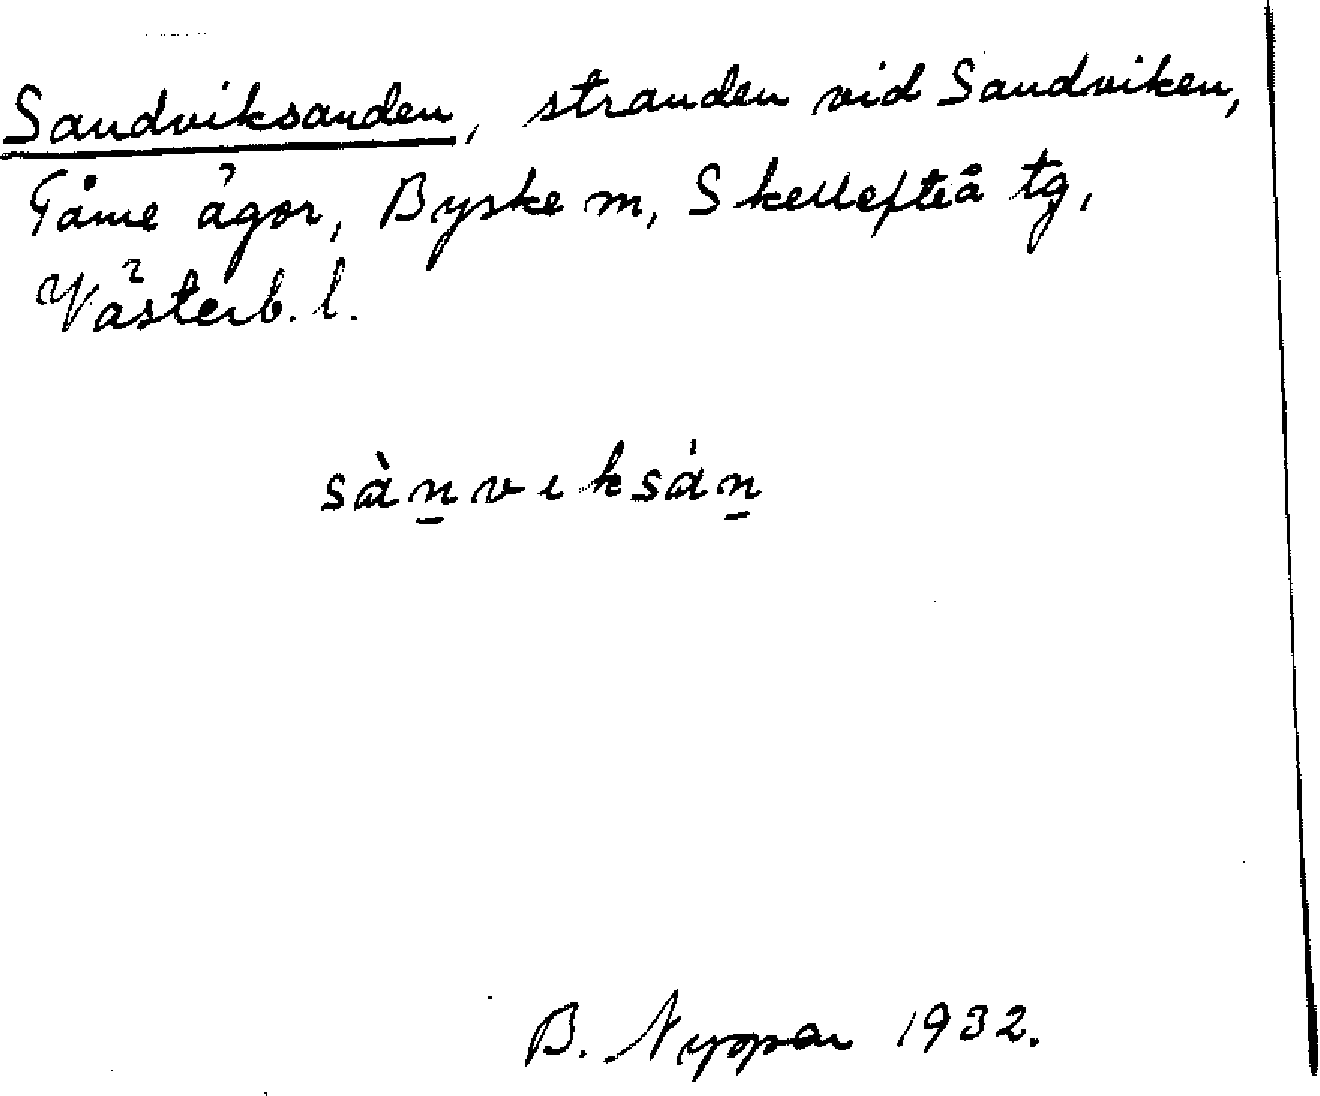 Sandviksanden, stranden vid Sandviken,
Tåme ägor, Byske m, Skellefteå tg,
Västerb. l.
sànviksán
B. Nyman 1932.